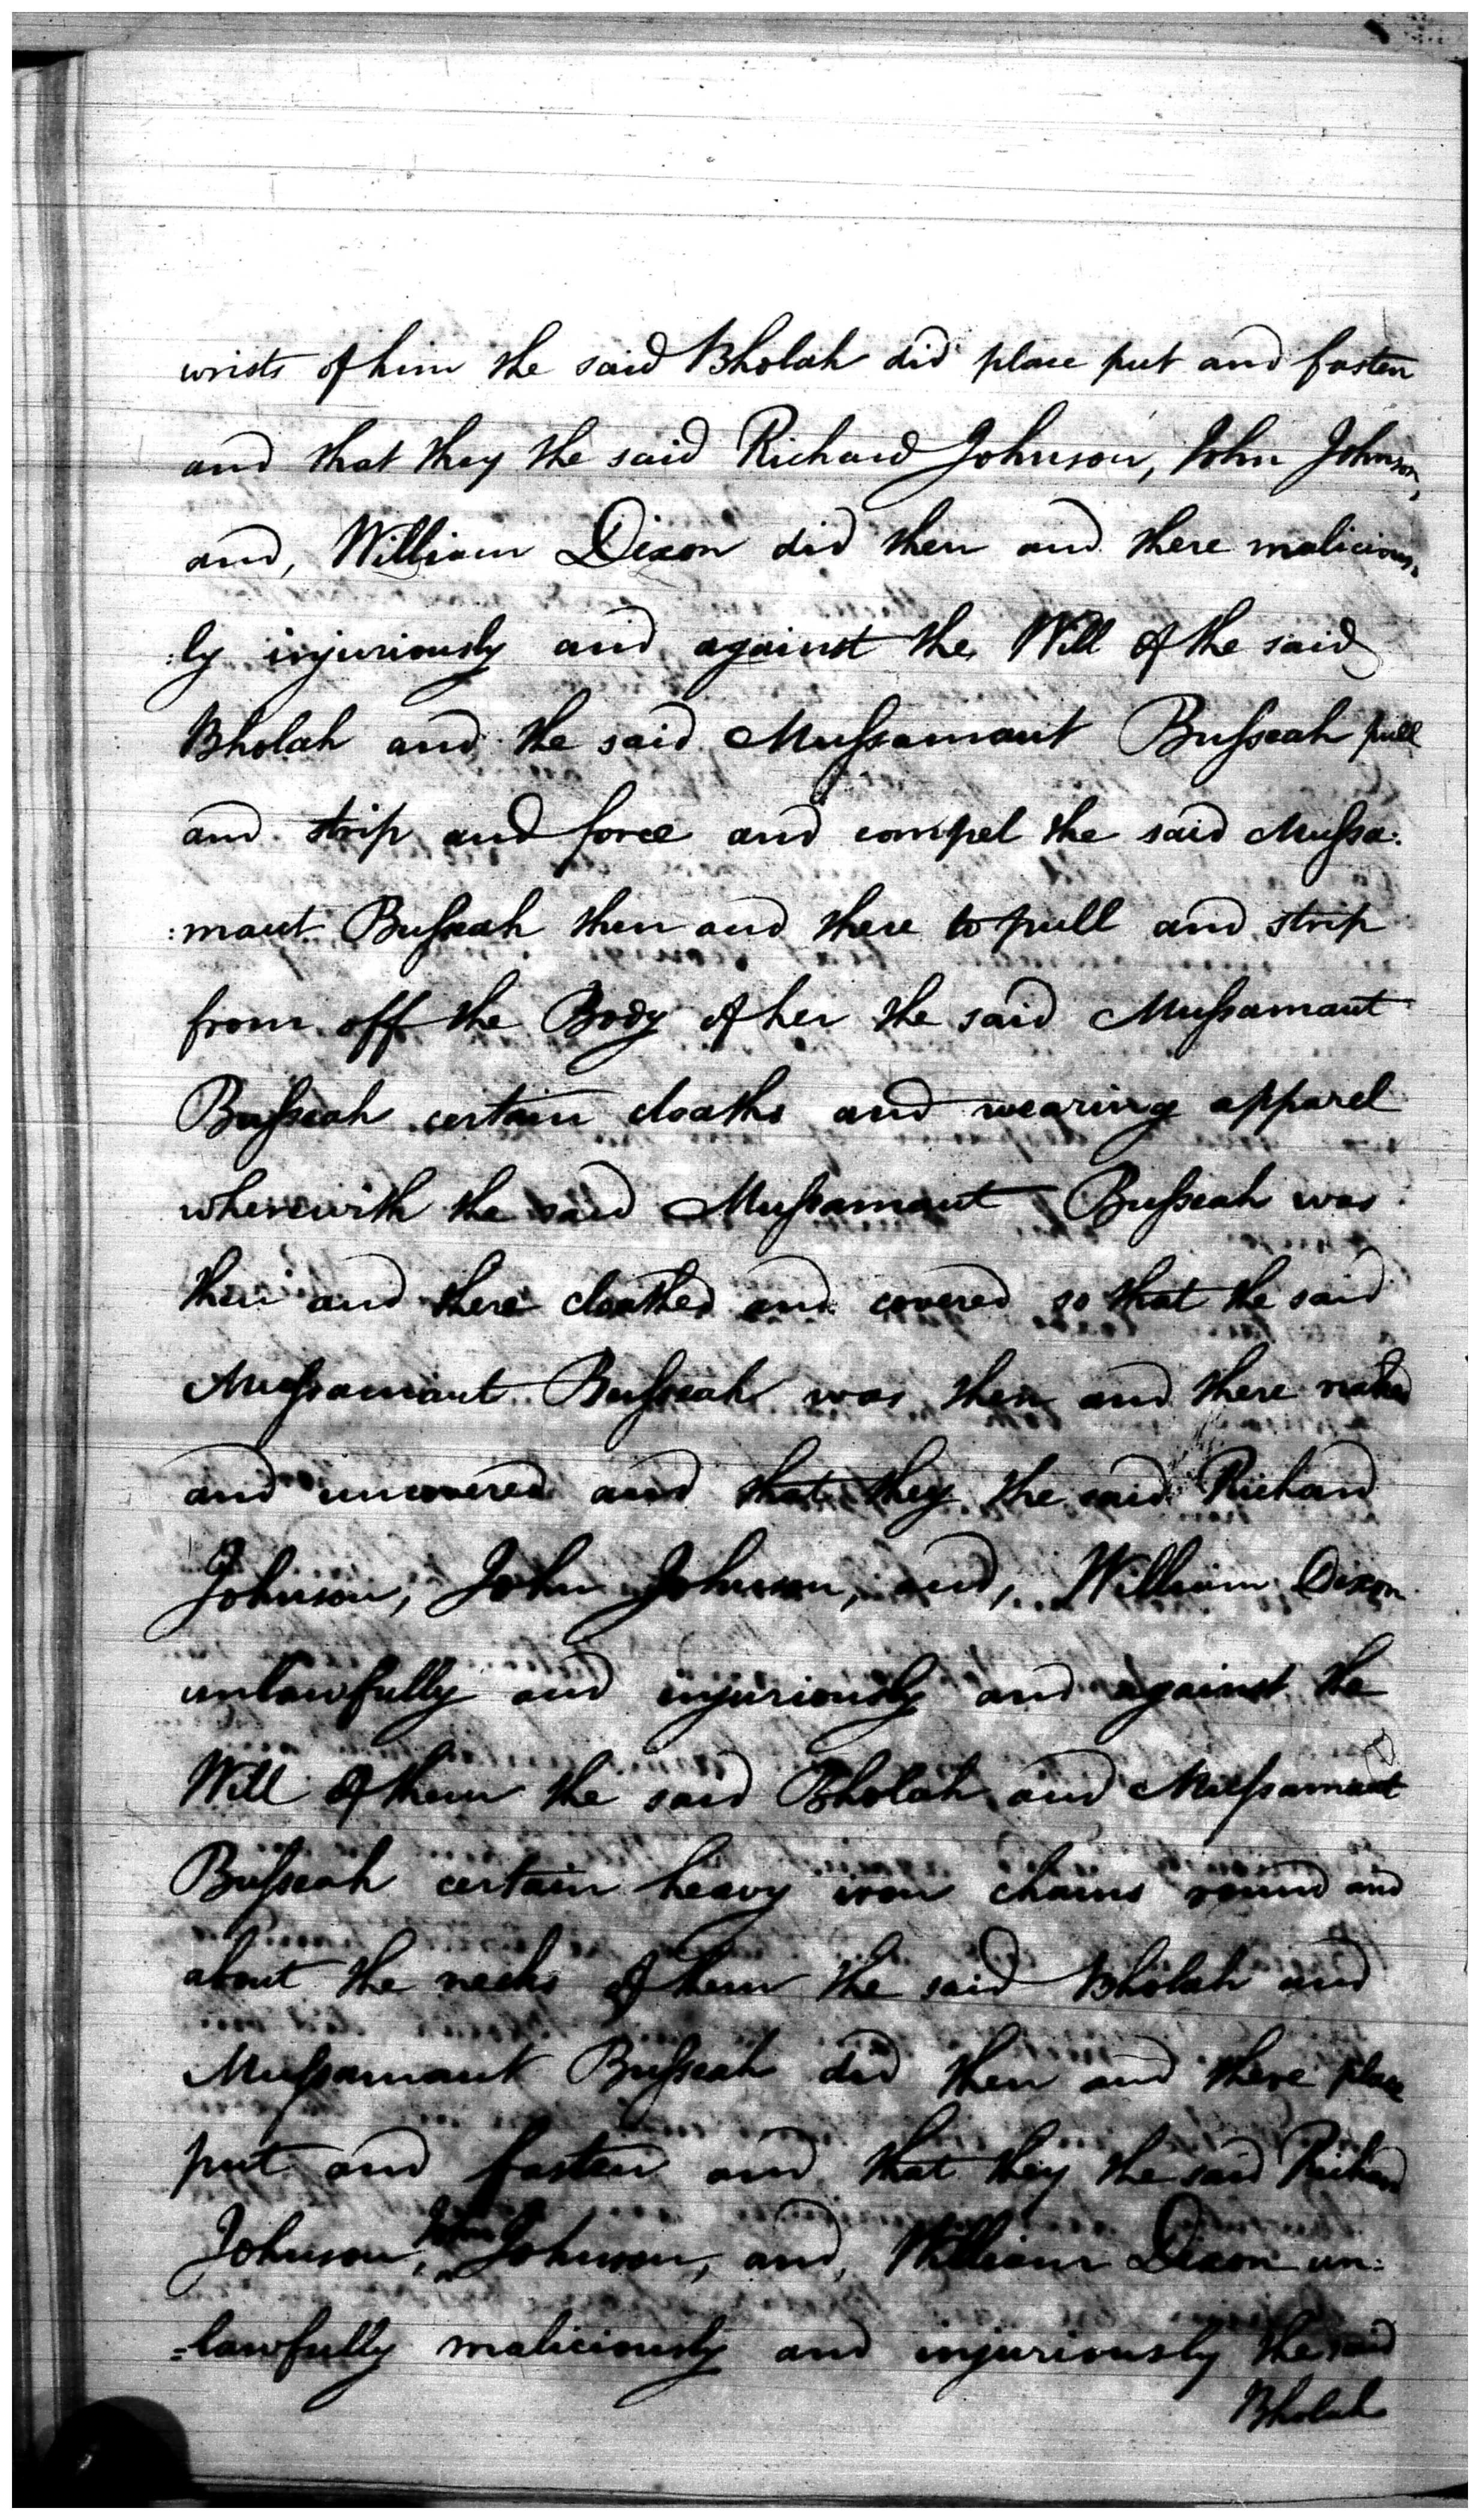 wrists of him the said Bholah did place put and fasten
and that they the said Richard Johnson, John Johnson,
and, William Dixon did then and there malicious,
:ly injuriously and against the Will of the said
Bholah and the said Mußamaut Bußeah pull
and strip and force and compel the said Mußa:
:maut Bußeah then and there to pull and strip
from off the Body of her the said Mußamaut
Bußeah certain cloaths and wearing apparel
wherewith the said Mußamaut Bußeah was
then and there cloathed and covered so that the said
Mußamaut Bußeah was then and there naked
and uncovered and that they the said Richard
Johnson, John Johnson, and, William Dixon
unlawfully and injuriously and against the
Will of them the said Bholah and Mußamaut
Bußeah certain heavy iron chains round and
about the necks of them the said Bholah and
Mußamaut Bußeah did then and there place
put and fasten and that they the said Richard
Johnson, John Johnson, and, William Dixon un:
=lawfully maliciously and injuriously the said
Bholah